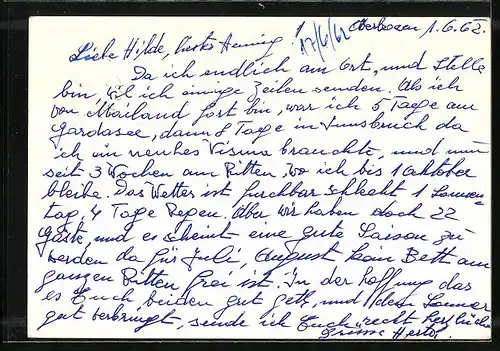 Oberbozen 1.6.62.
17/6/62
Liebe Hilde, lieber Henning!
Da ich endlich am Ort, und Stelle
bin, will ich einige Zeilen senden. Als ich
von Mailand fort bin, war ich 5 Tage am
Gardasee, dann 8 Tage in Innsbruck da
ich ein neuhes Visum brauchte, und nun
seit 3 Wochen am Ritten, wo ich bis 1 Oktober
bleibe. Das Wetter ist furchbar schlecht 1 Sonnen-
tag, 4 Tage Regen. Aber wir haben doch 22
Gäste, und es scheint eine gute Saison zu
werden da für Juli, August kein Bett am
ganzen Ritten frei ist. In der Hoffnung das
es Euch beiden gut geht, und den Sommer
gut verbringt, sende ich Euch recht herzliche
Grüsse Herta